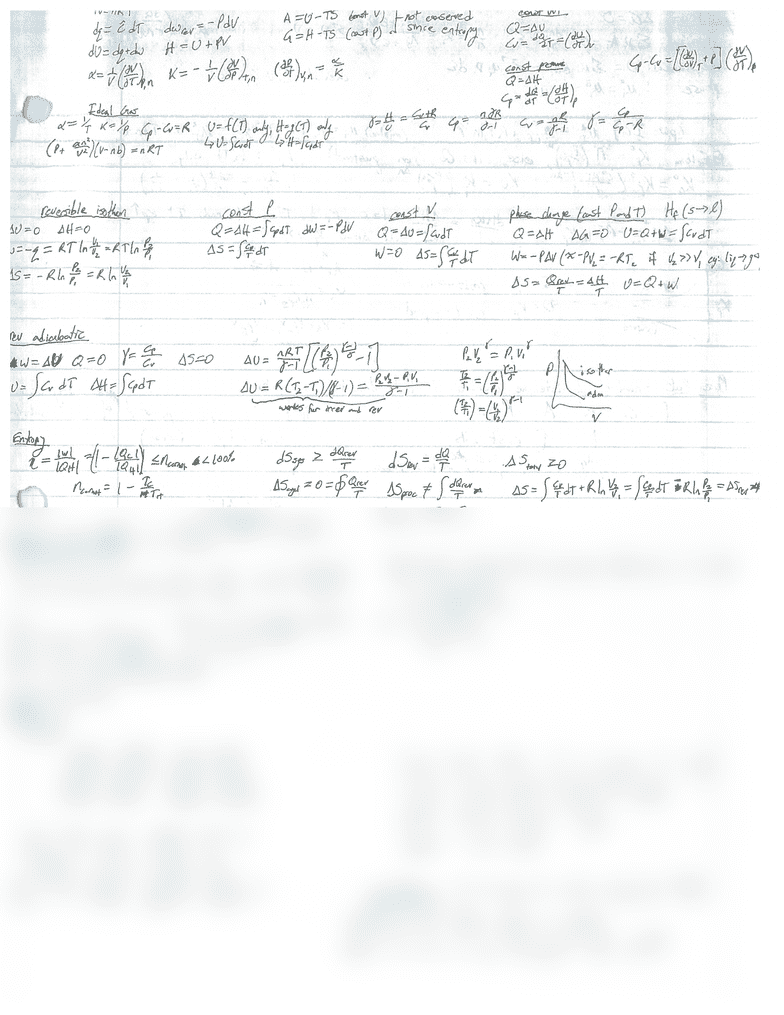 dq = ĉ dT   dw_rev = -PdV   A = U - TS (const V) } not conserved
dU = dq + dw   H = U + PV   G = H - TS (const P) since entropy
α = 1/V (∂V/∂T)_P,n   K = -1/V (∂V/∂P)_T,n   (∂P/∂T)_V,n = α/K
const vol
Q = ΔU
Cv = dQ/dT = (∂U/∂T)_V
const pressure
Q = ΔH
Cp = dQ/dT = (∂H/∂T)_P
Cp - Cv = [(∂U/∂V)_T + P] (∂V/∂T)_P
Ideal Gas
α = 1/T   K = 1/P   Cp - Cv = R   U = f(T) only, H = g(T) only   γ = H/U = Cv+R/Cv   Cp = nγR/γ-1   Cv = nR/γ-1   γ = Cp/Cp-R
↳ U = ∫CvdT   ↳ H = ∫CpdT
(P + an²/V²)(V - nb) = nRT
reversible isotherm
ΔU = 0   ΔH = 0
= -q = RT ln V₁/V₂ = RT ln P₂/P₁
ΔS = -R ln P₂/P₁ = R ln V₂/V₁
const P
Q = ΔH = ∫CpdT   dW = -PdV
ΔS = ∫Cp/T dT
const V
Q = ΔU = ∫CvdT
W = 0   ΔS = ∫Cv/T dT
phase change (const P and T)   Hf (s→l)
Q = ΔH   ΔG = 0   U = Q + W = ∫CvdT
W = -PΔV (≈ -PV₂ = -RT₂ if V₂ >> V₁ eg: liq→gas
ΔS = Qrev/T = ΔH/T   U = Q + W
rev adiabatic
W = ΔU   Q = 0   γ = Cp/Cv   ΔS = 0   ΔU = nRT/γ-1 [(P₂/P₁)^γ-1/γ - 1]
U = ∫Cv dT   ΔH = ∫CpdT   ΔU = R(T₂ - T₁)/(γ-1) = P₂V₂ - P₁V₁/γ-1
works for irrev and rev
P₂V₂^γ = P₁V₁^γ
T₂/T₁ = (P₂/P₁)^γ-1/γ
(T₂/T₁) = (V₁/V₂)^γ-1
P
isother
adia
V
Entropy
η = |W|/|Q_H| = (1 - |Q_C|/|Q_H|) ≤ η_carnot < 100%   dS_sys ≥ dQrev/T   dS_rev = dQ/T   ΔS_total ≥ 0
η_carnot = 1 - T_C/T_H   ΔS_cycl = 0 = ∮ Qrev/T   ΔS_proc ≠ ∫ dQrev/T   ΔS = ∫Cv/T dT + R ln V₂/V₁ = ∫Cp/T dT - R ln P₂/P₁ = ΔS